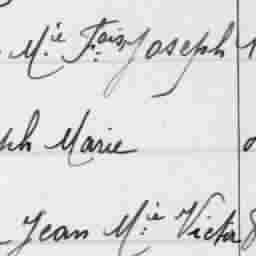 M.ie F.ois Joseph
ph Marie
Jean M.ie Victor